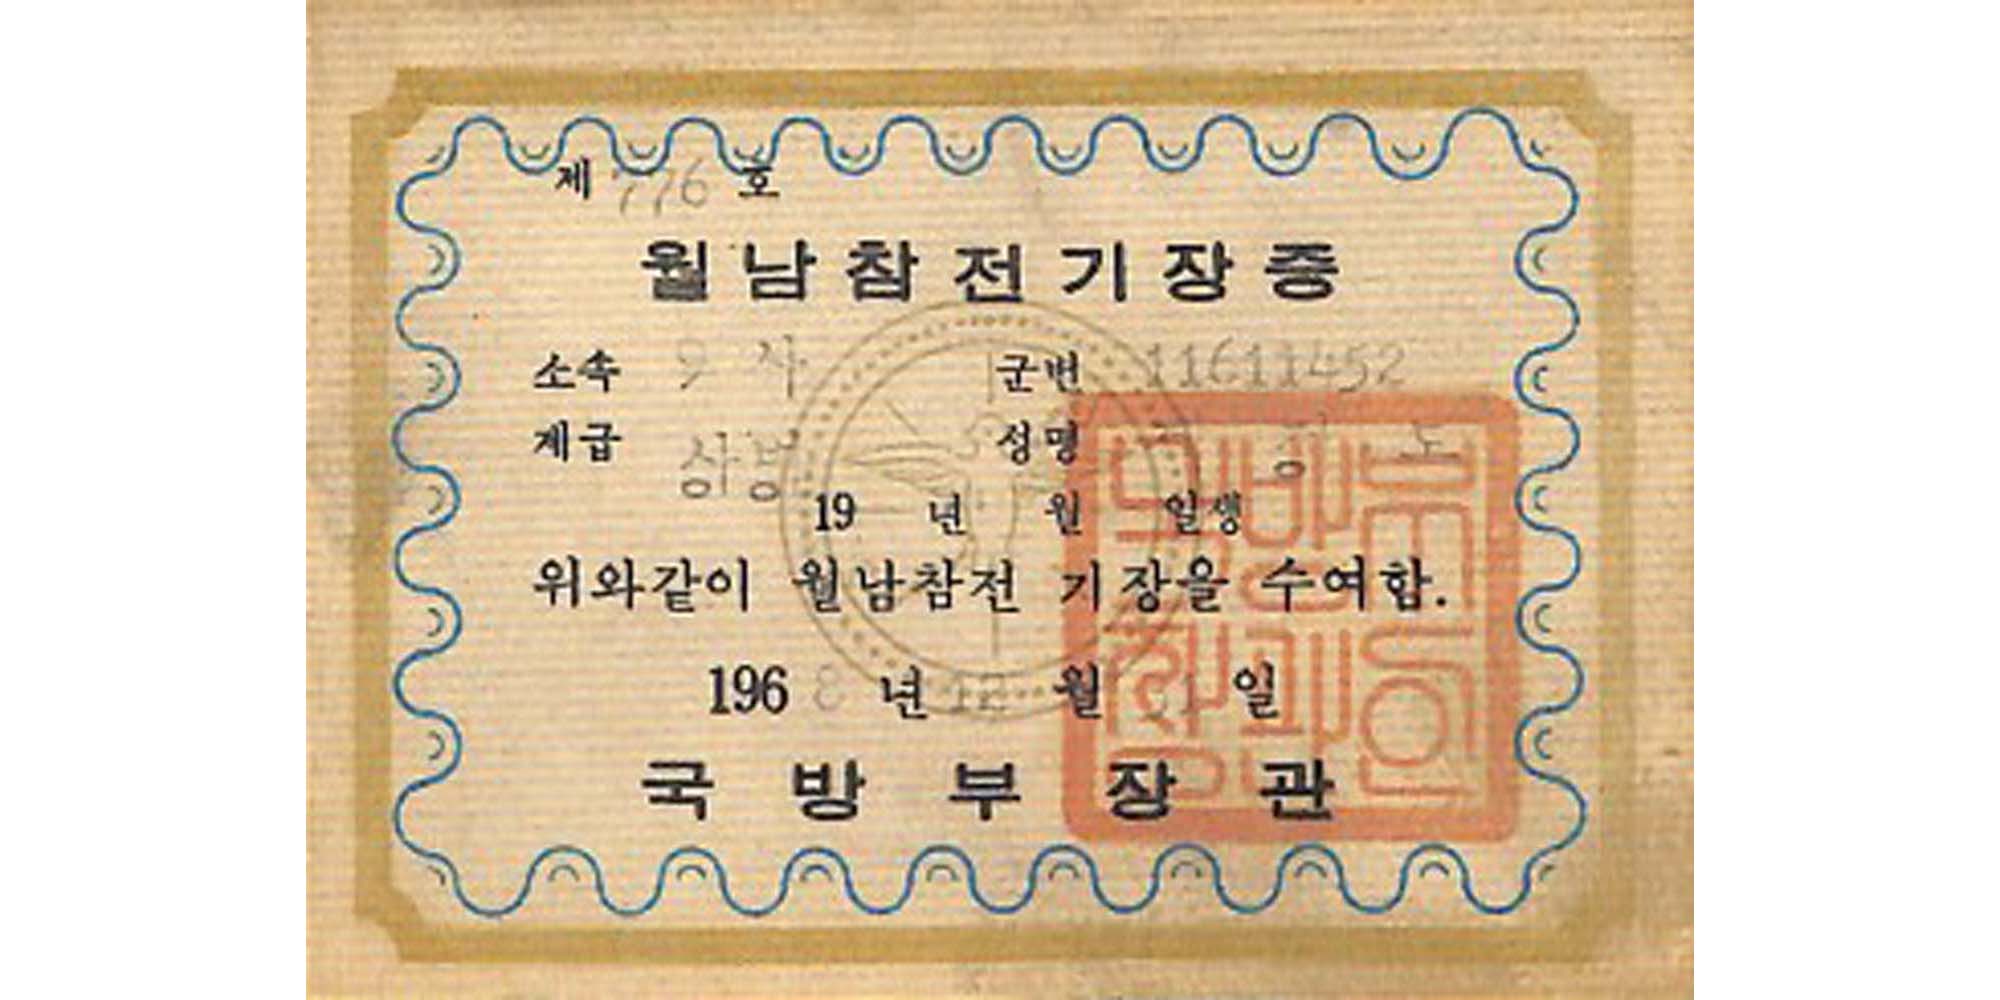 제 776 호
월남참전기장증
소속 9 사 군번 11611452
계급 상병 성명
19 년 월 일생
위와같이 월남참전 기장을 수여함.
1968 년 12 월 일
국방부장관
국방부장관인